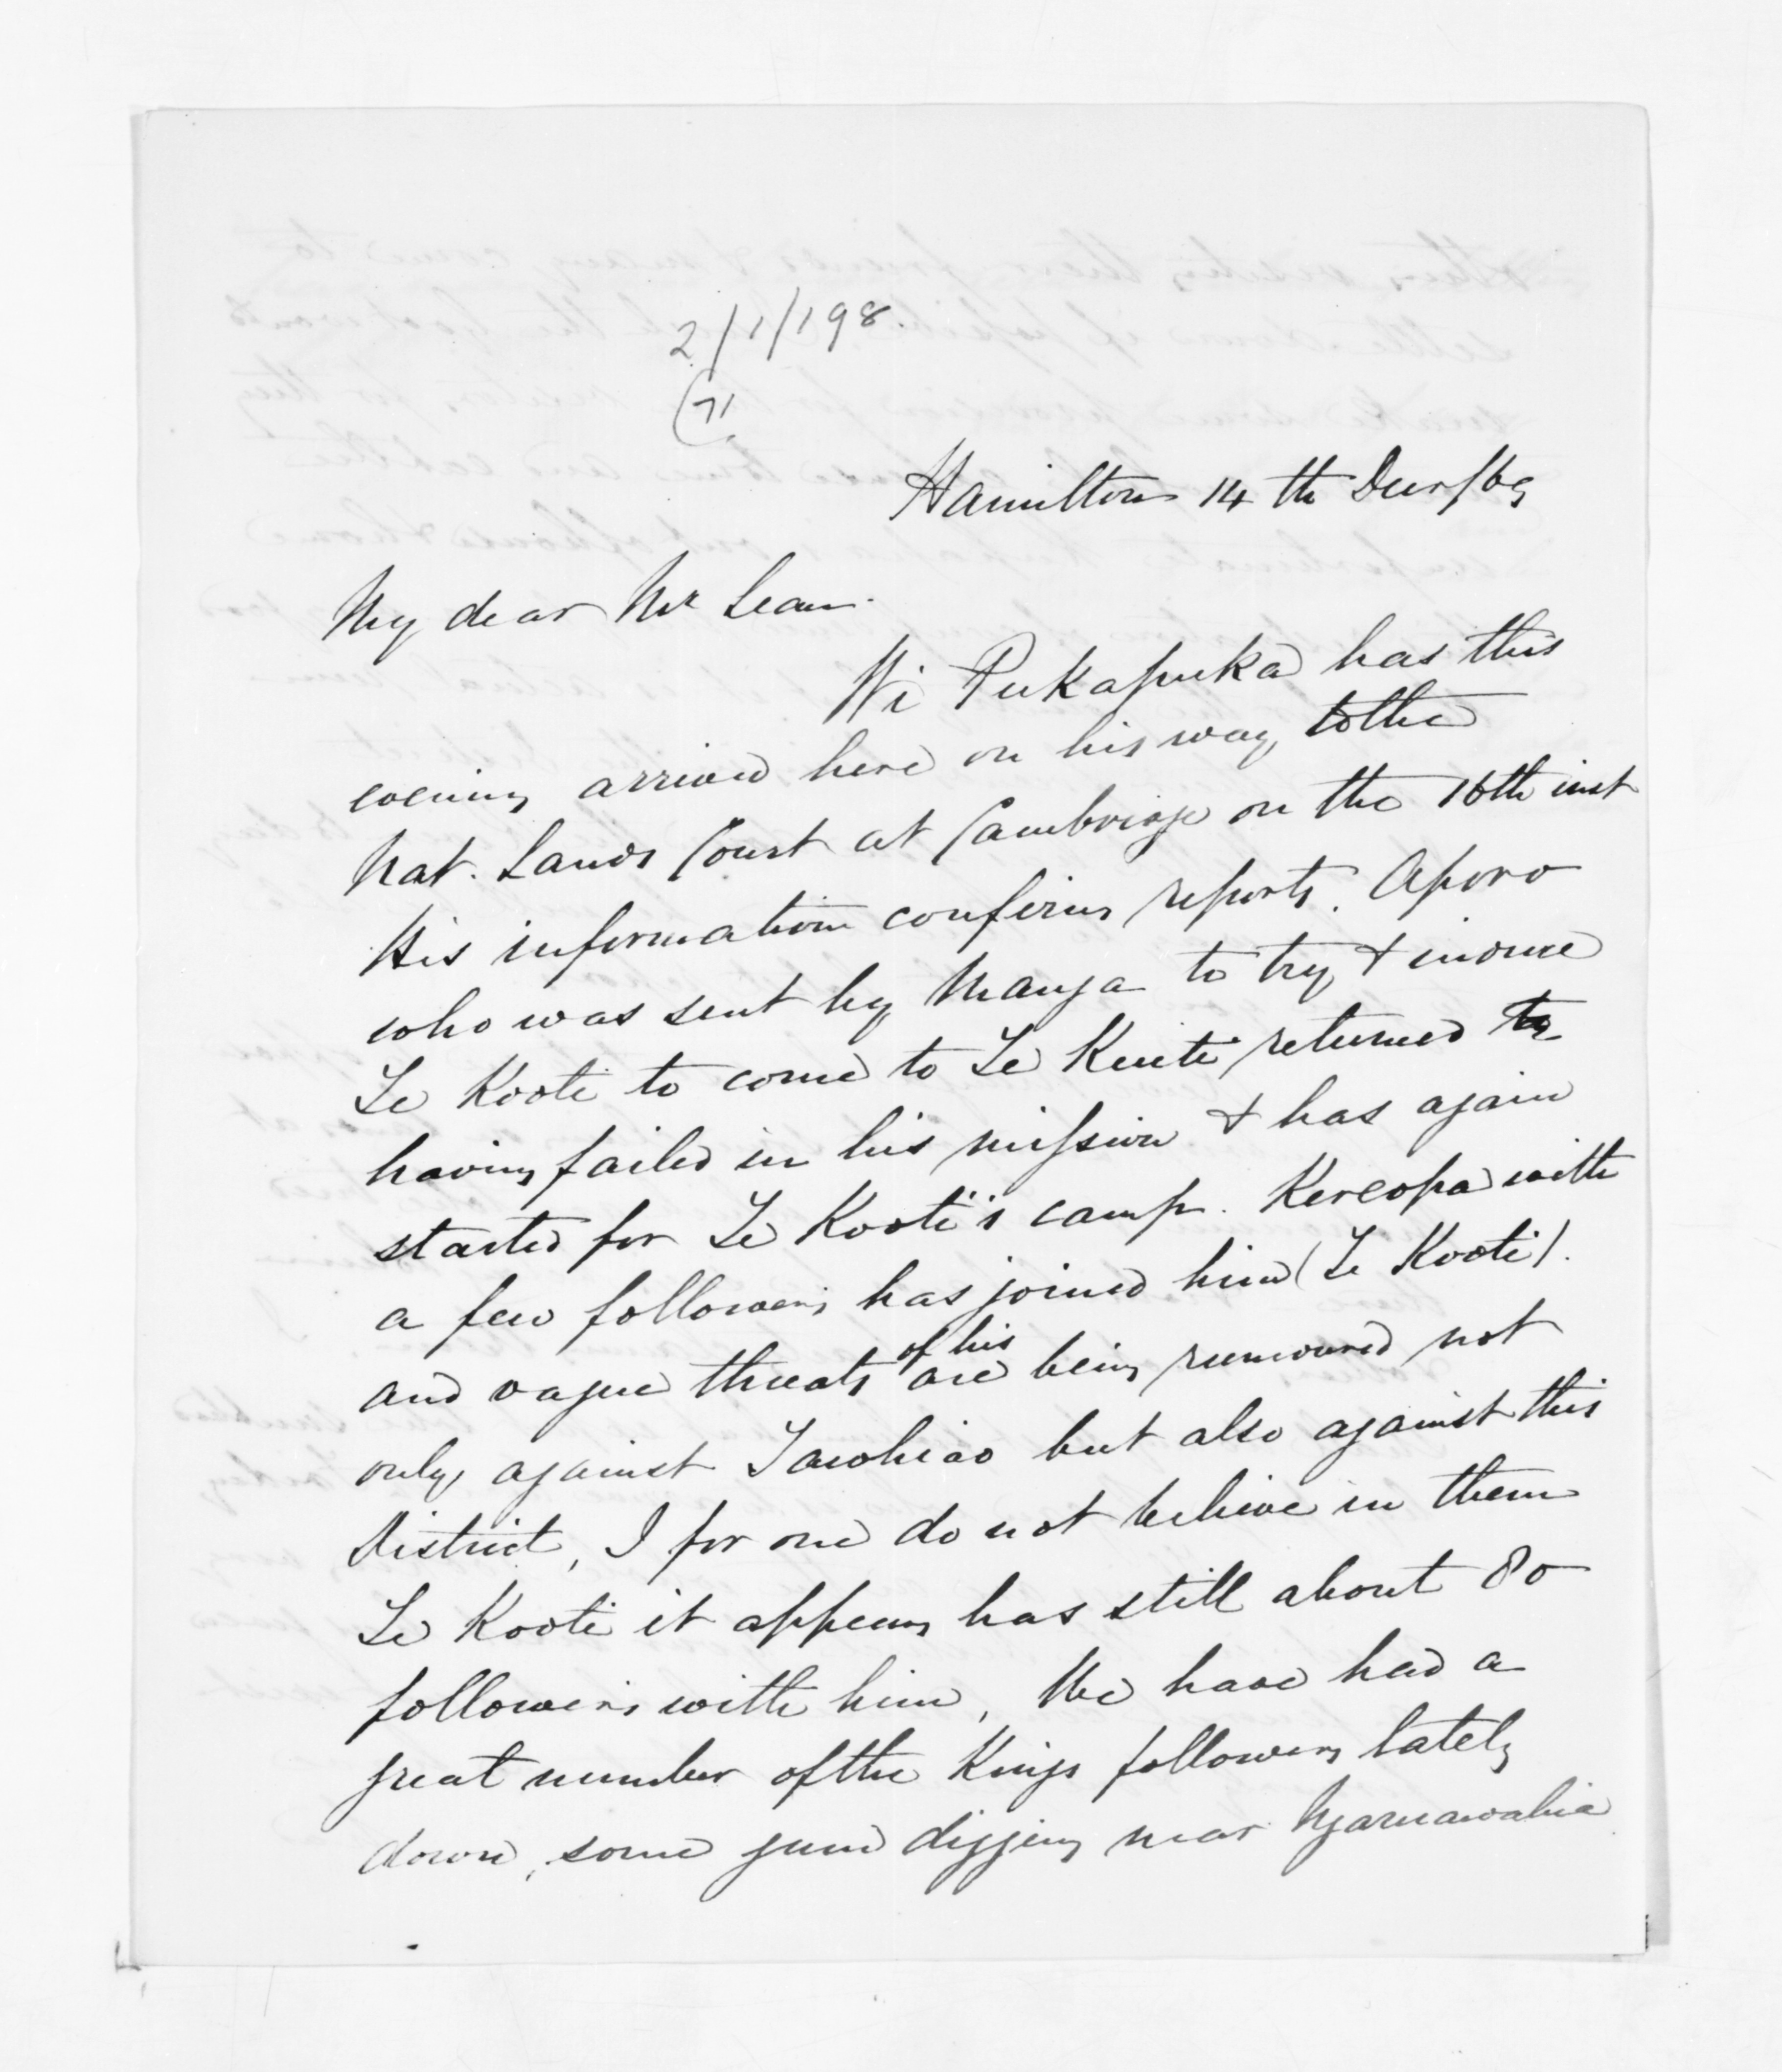 2/1/198.
(71
Hamilton 14th Decr/69
My dear Mr Lean.
Wi Pukapuka has this
evening arrived here on his way to the
Nat. Lands Court at Cambridge on the 16th inst
His information confirms reports. Aporo
who was sent by Manga to try & induce
Te Kooti to come to Te Kuiti returned
having failed in his mission & has again
started for Te Kooti's camp. Kereopa with
a few followers has joined him (Te Kooti).
and vague threats of his are being rumoured not
only against Tawhiao but also against this
District, I for one do not believe in them
Te Kooti it appears has still about 80
followers with him, We have had a
great number of the Kings followers lately
down, some gum digging near Ngaruawahia